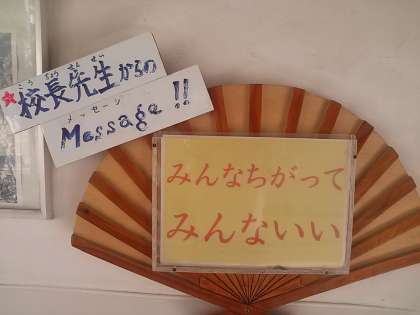 ★校長先生からの
こうちょうせんせい
Message!!
メッセージ
みんなちがって
みんないい